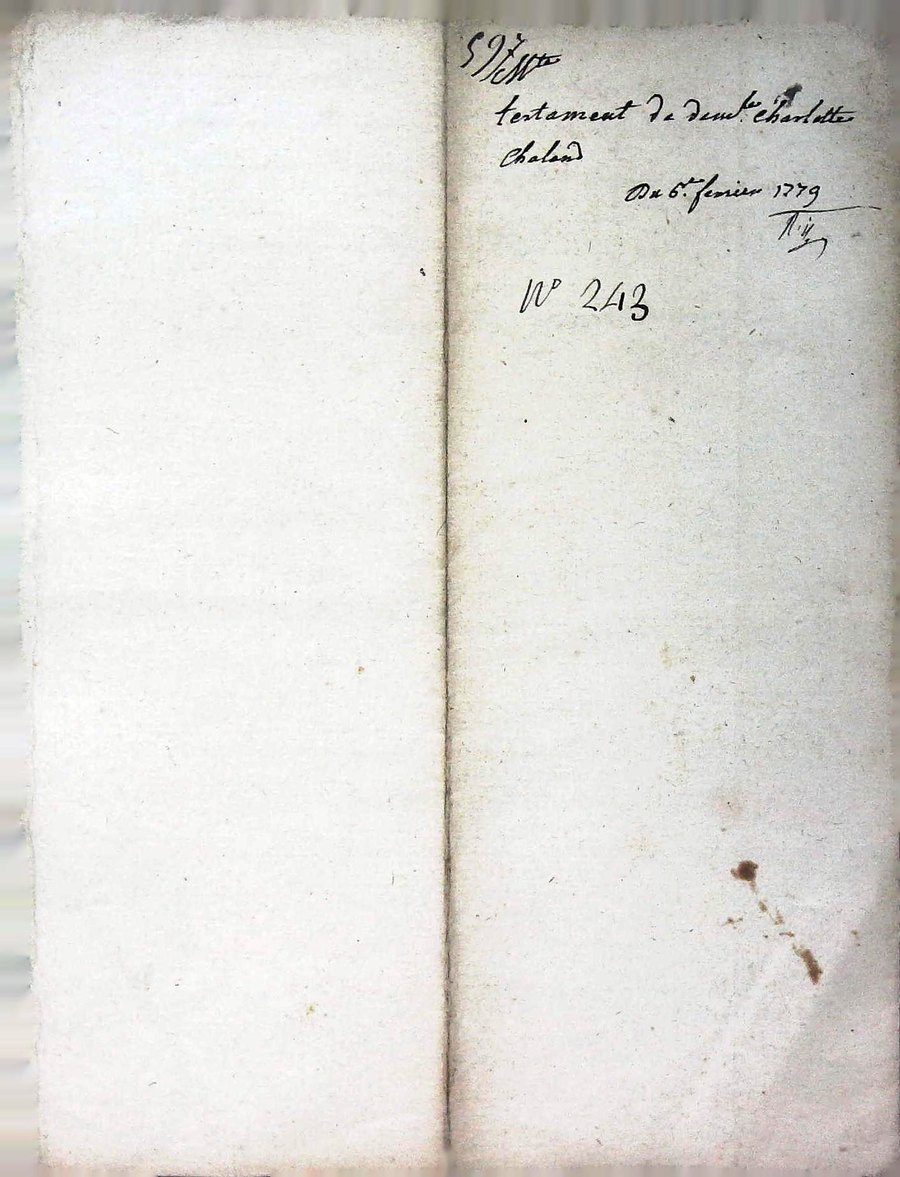 597 Mte
testament de demlle Charlotte
Chaland
Du 6e fevrier 1779
No 243